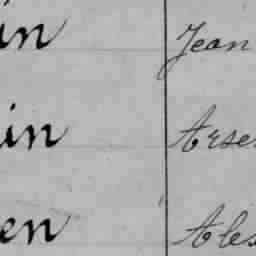 in Jean
in Arse
en Ales